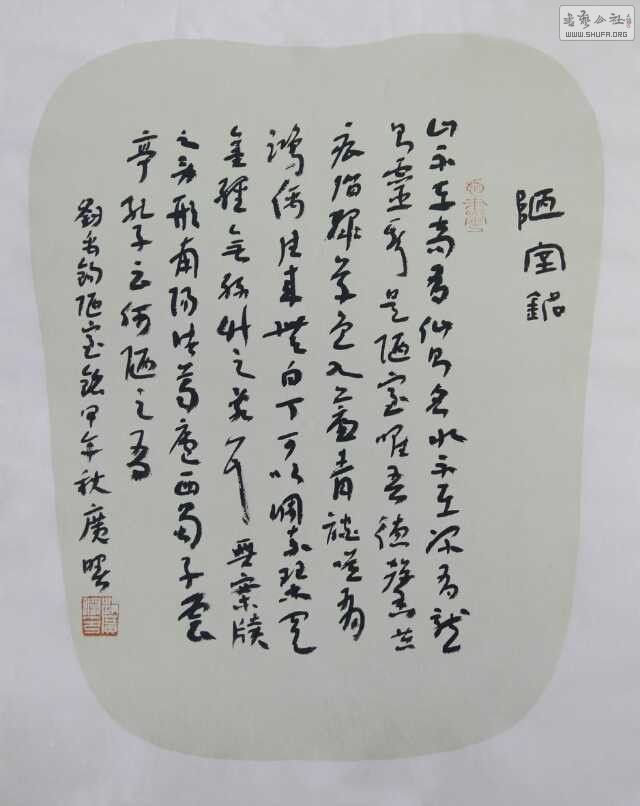 書藝公社
WWW.SHUFA.ORG
陋室銘
山不在高有仙則名水不在深有龍
則靈斯是陋室唯吾德馨苔
痕階綠草色入簾青談笑有
鴻儒往來無白丁可以調素琴閱
金經無絲竹之亂耳無案牘
之勞形南陽諸葛廬西蜀子雲
亭孔子云何陋之有
劉禹錫陋室銘甲午秋廣